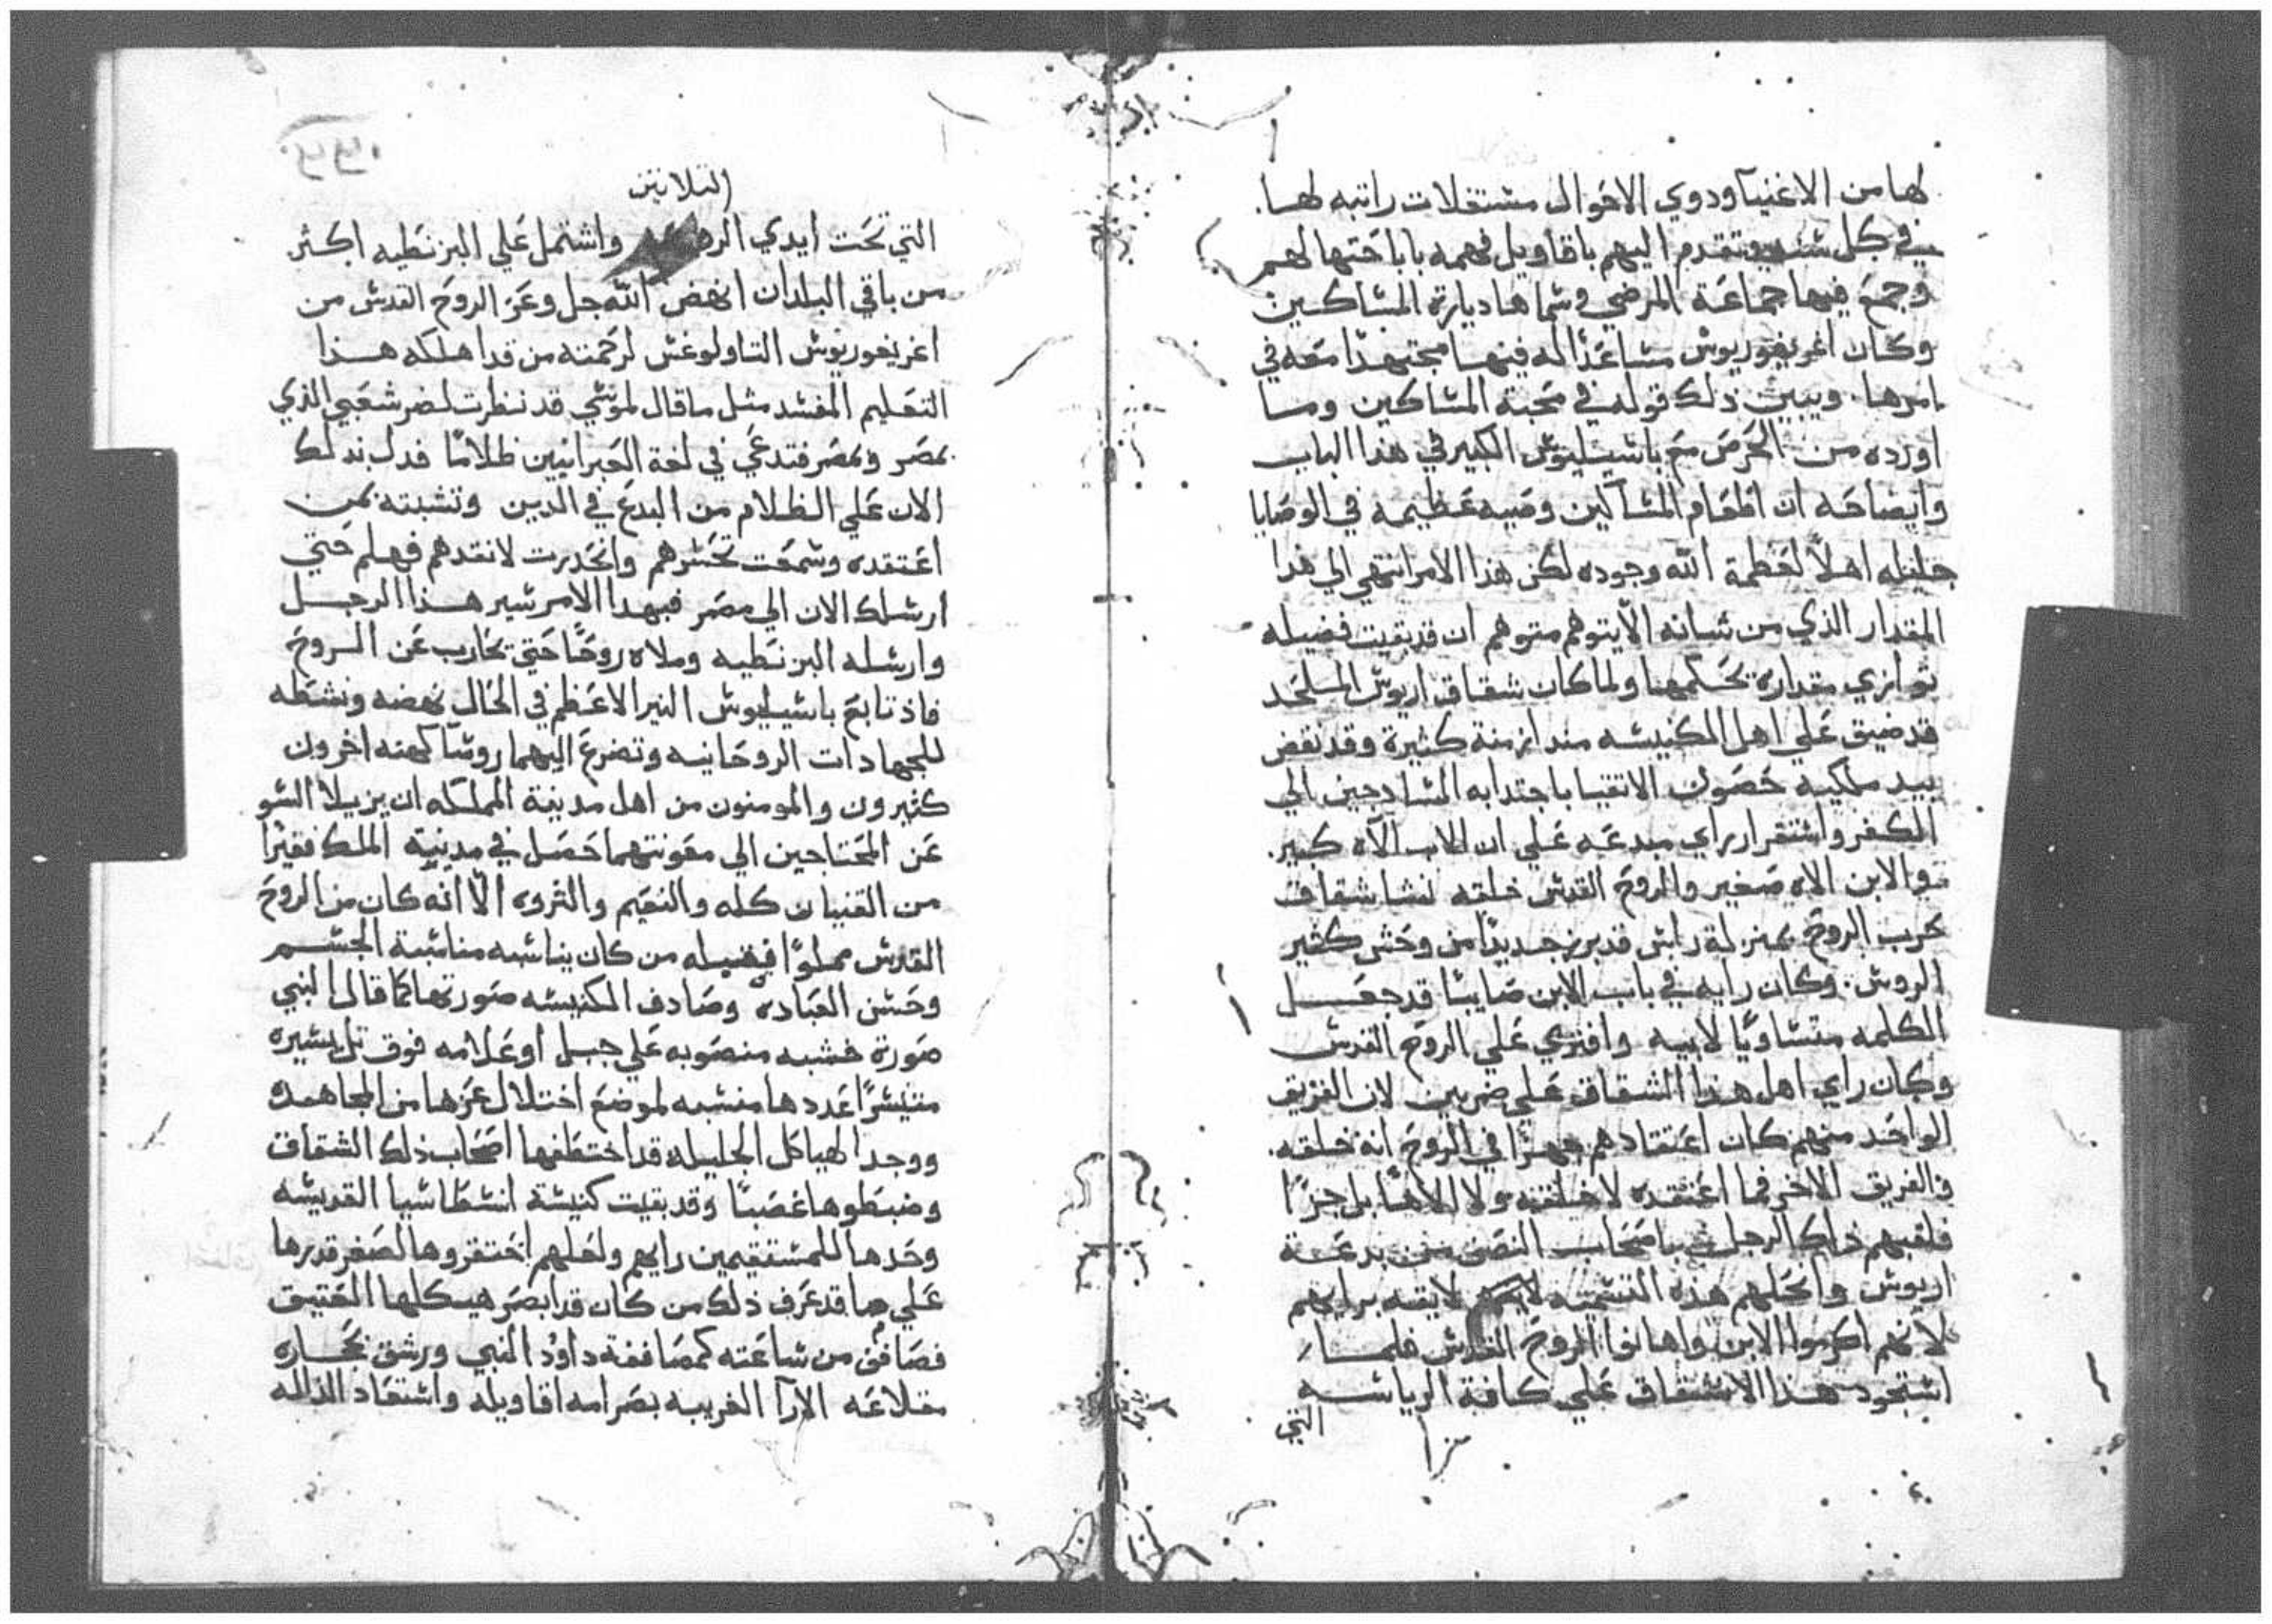 لها من الاغنيآ ودوي الاحوال مشتغلات راتبه لها.
في كل شنه وتقدم اليهم باقاويل فهمه باباحتها لهم
وجمع فيها جماعة المرضي وشماها ديارة المشاكين
وكان اغريغوريوش مشاعدًا له فيها مجتهدًا معه في
امرها. ويبين ذلك قوله في محبة المشاكين وما
اورده من الحرص مع باشيليوش الكبير في هذا الباب
وايضاحه ان اطعام المشاكين وصيه عظيمه في الوصايا
جليله اهلاً لعظمة الله وجوده لكن هذا الامر انتهي الي هذا
المقدار الذي من شانه الا يتوهم متوهم ان قد بقيت فضيله
توازي مقداره بحكمها ولما كان شقاق اريوش الملحد
قد ضيق علي اهل الكنيشه مند ازمنة كثيرة وقد نفض
بيد ملكيه حصون الاتقيا باجتدابه الشادجين الي
الكفر واشتقرار راي مبدعه علي ان الاب الآه كبير.
والابن الاه صغير والروح القدش خلقه نشا شقاف
حرب الروح بمنزلة راش قد برز جديدًا من وحش كثير
الروش. وكان رايه في باب الابن صايبًا قد جعل
الكلمه متشاويًا لابيه وافتري علي الروح القدش
وكان راي اهل هذا الشقاق علي ضربين لان الفريق
الواحد منهم كان اعتقادهم جهرًا في الروح انه خلقه.
والفريق الاخر فما اعتقده لا خلقته ولا الاهًا بل جزًا
فلقبهم ذلك الرجل باصحاب النصف من بدعة
اريوش وانحلهم هذه التشميه لايقه برايهم
لانهم اكرموا الابن واهانوا الروح القدش فلما
اشتحود هذا الاشتقاق علي كافة الرياشه
التي
التلاتين
التي تحت ايدي الروم واشتمل علي البزنطيه اكثر
من باقي البلدان انهض الله جل وعز الروح القدش من
اغريغوريوش التاولوغش لرحمته من قد اهلكه هذا
التعليم المفشد مثل ما قال لموشي قد نظرت لضر شعبي الذي
بمصر ومصر فتدعي في لغة العبرانيين ظلامًا فدل بدلك
الان علي الظلام من البدع في الدين وتشبته بمن
اعتقده وشمعت تحشرهم وانحدرت لانقدهم فهلم حتي
ارشلك الان الي مصر فبهدا الامر شير هذا الرجل
وارشله البزنطيه وملاه روحًا حتي يحارب عن الروح
فاذ تابع باشيليوش النير الاعظم في الحال نهضه ونشطه
للجهادات الروحانيه وتضرع اليهما روشآ كهنه اخرون
كثيرون والمومنون من اهل مدينة المملكه ان يزيلا الشو
عن المحتاجين الي معونتهما حصل في مدينة الملك فقيرًا
من القنيان كله والنعيم والثروه الا انه كان من الروح
القدش مملوًا فضيله من كان يناشبه مناشبة الجشم
وحشن العباده وصادف الكنيشه صورتها كما قال النبي
صورة خشبه منصوبه علي جبل او علامه فوق تل يشيره
متيشرًا عددها منشبه لموضع اختلال عزها من المجاهده
ووجد الهياكل الجليله قد اختطفها اصحاب ذلك الشقاق
وضبطوها غصبًا وقد بقيت كنيشة انشطاشيا القديشه
وحدها للمشتقيمين رايهم ولعلهم احتقروها لصغر قدرها
علي ما قد عرف ذلك من كان قد ابصر هيكلها العتيق
فصافن من شاعته كمصاففة داوٌد النبي ورشق بحجاره
مقلاعه الارآ الغريبه بصرامه اقاويله واشتعاد الذاله